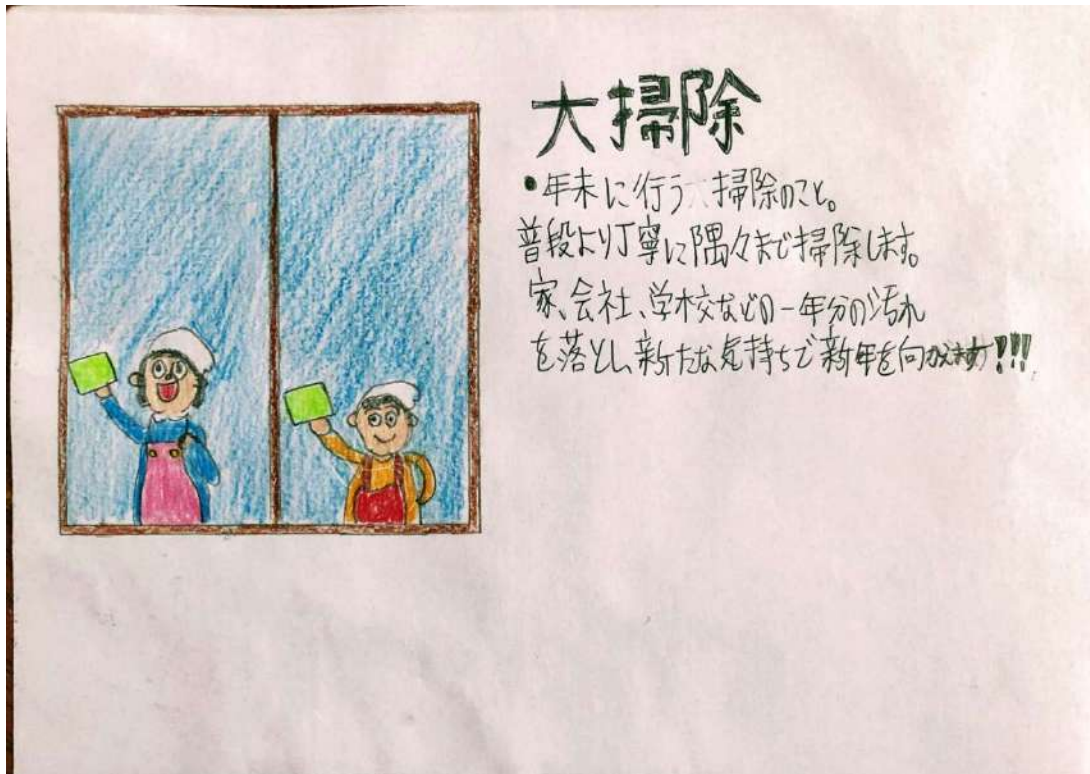 大掃除
●年末に行う大掃除のこと。
普段より丁寧に隅々まで掃除します。
家、会社、学校などの一年分の汚れ
を落とし、新たな気持ちで新年を向かえます!!!